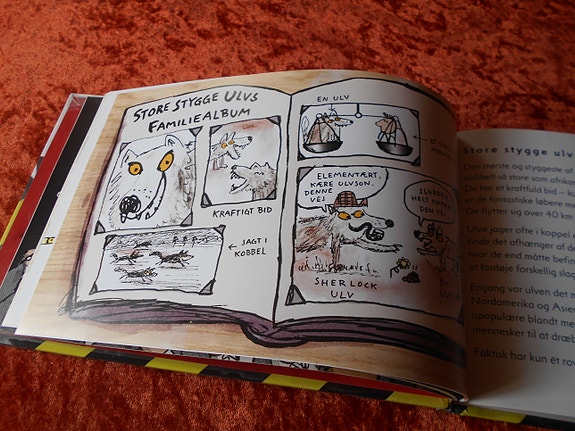 STORE STYGGE ULVS
FAMILIEALBUM
KRAFTIGT BID
← JAGT I
KOBBEL
EN ULV
ELEMENTÆRT,
KÆRE ULVSON.
DENNE
VEJ
HELT
DEN VEJ
SHERLOCK
ULV
Store stygge ulv
Den største og styggeste af
dobbelt så store som afrika
De har et kraftfuld bid –
er de fantastiske løbere me
De flytter sig over 40 km
Ulve jager ofte i kobbel
finde det afhænger af de
hvor de end måtte befin
at fordøje forskellig slag
Engang var ulven det m
Nordamerika og Asien
upopulære blandt me
mennesker til at dræb
Faktisk har kun ét rov